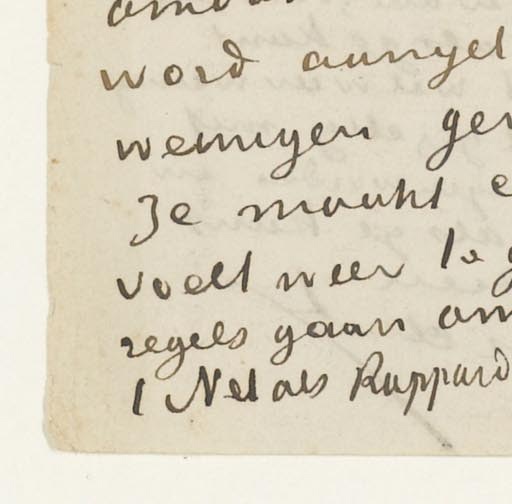 word aangel
weinigen ger
Je maakt e
voelt weer te g
regels gaan om
Net als Rappard